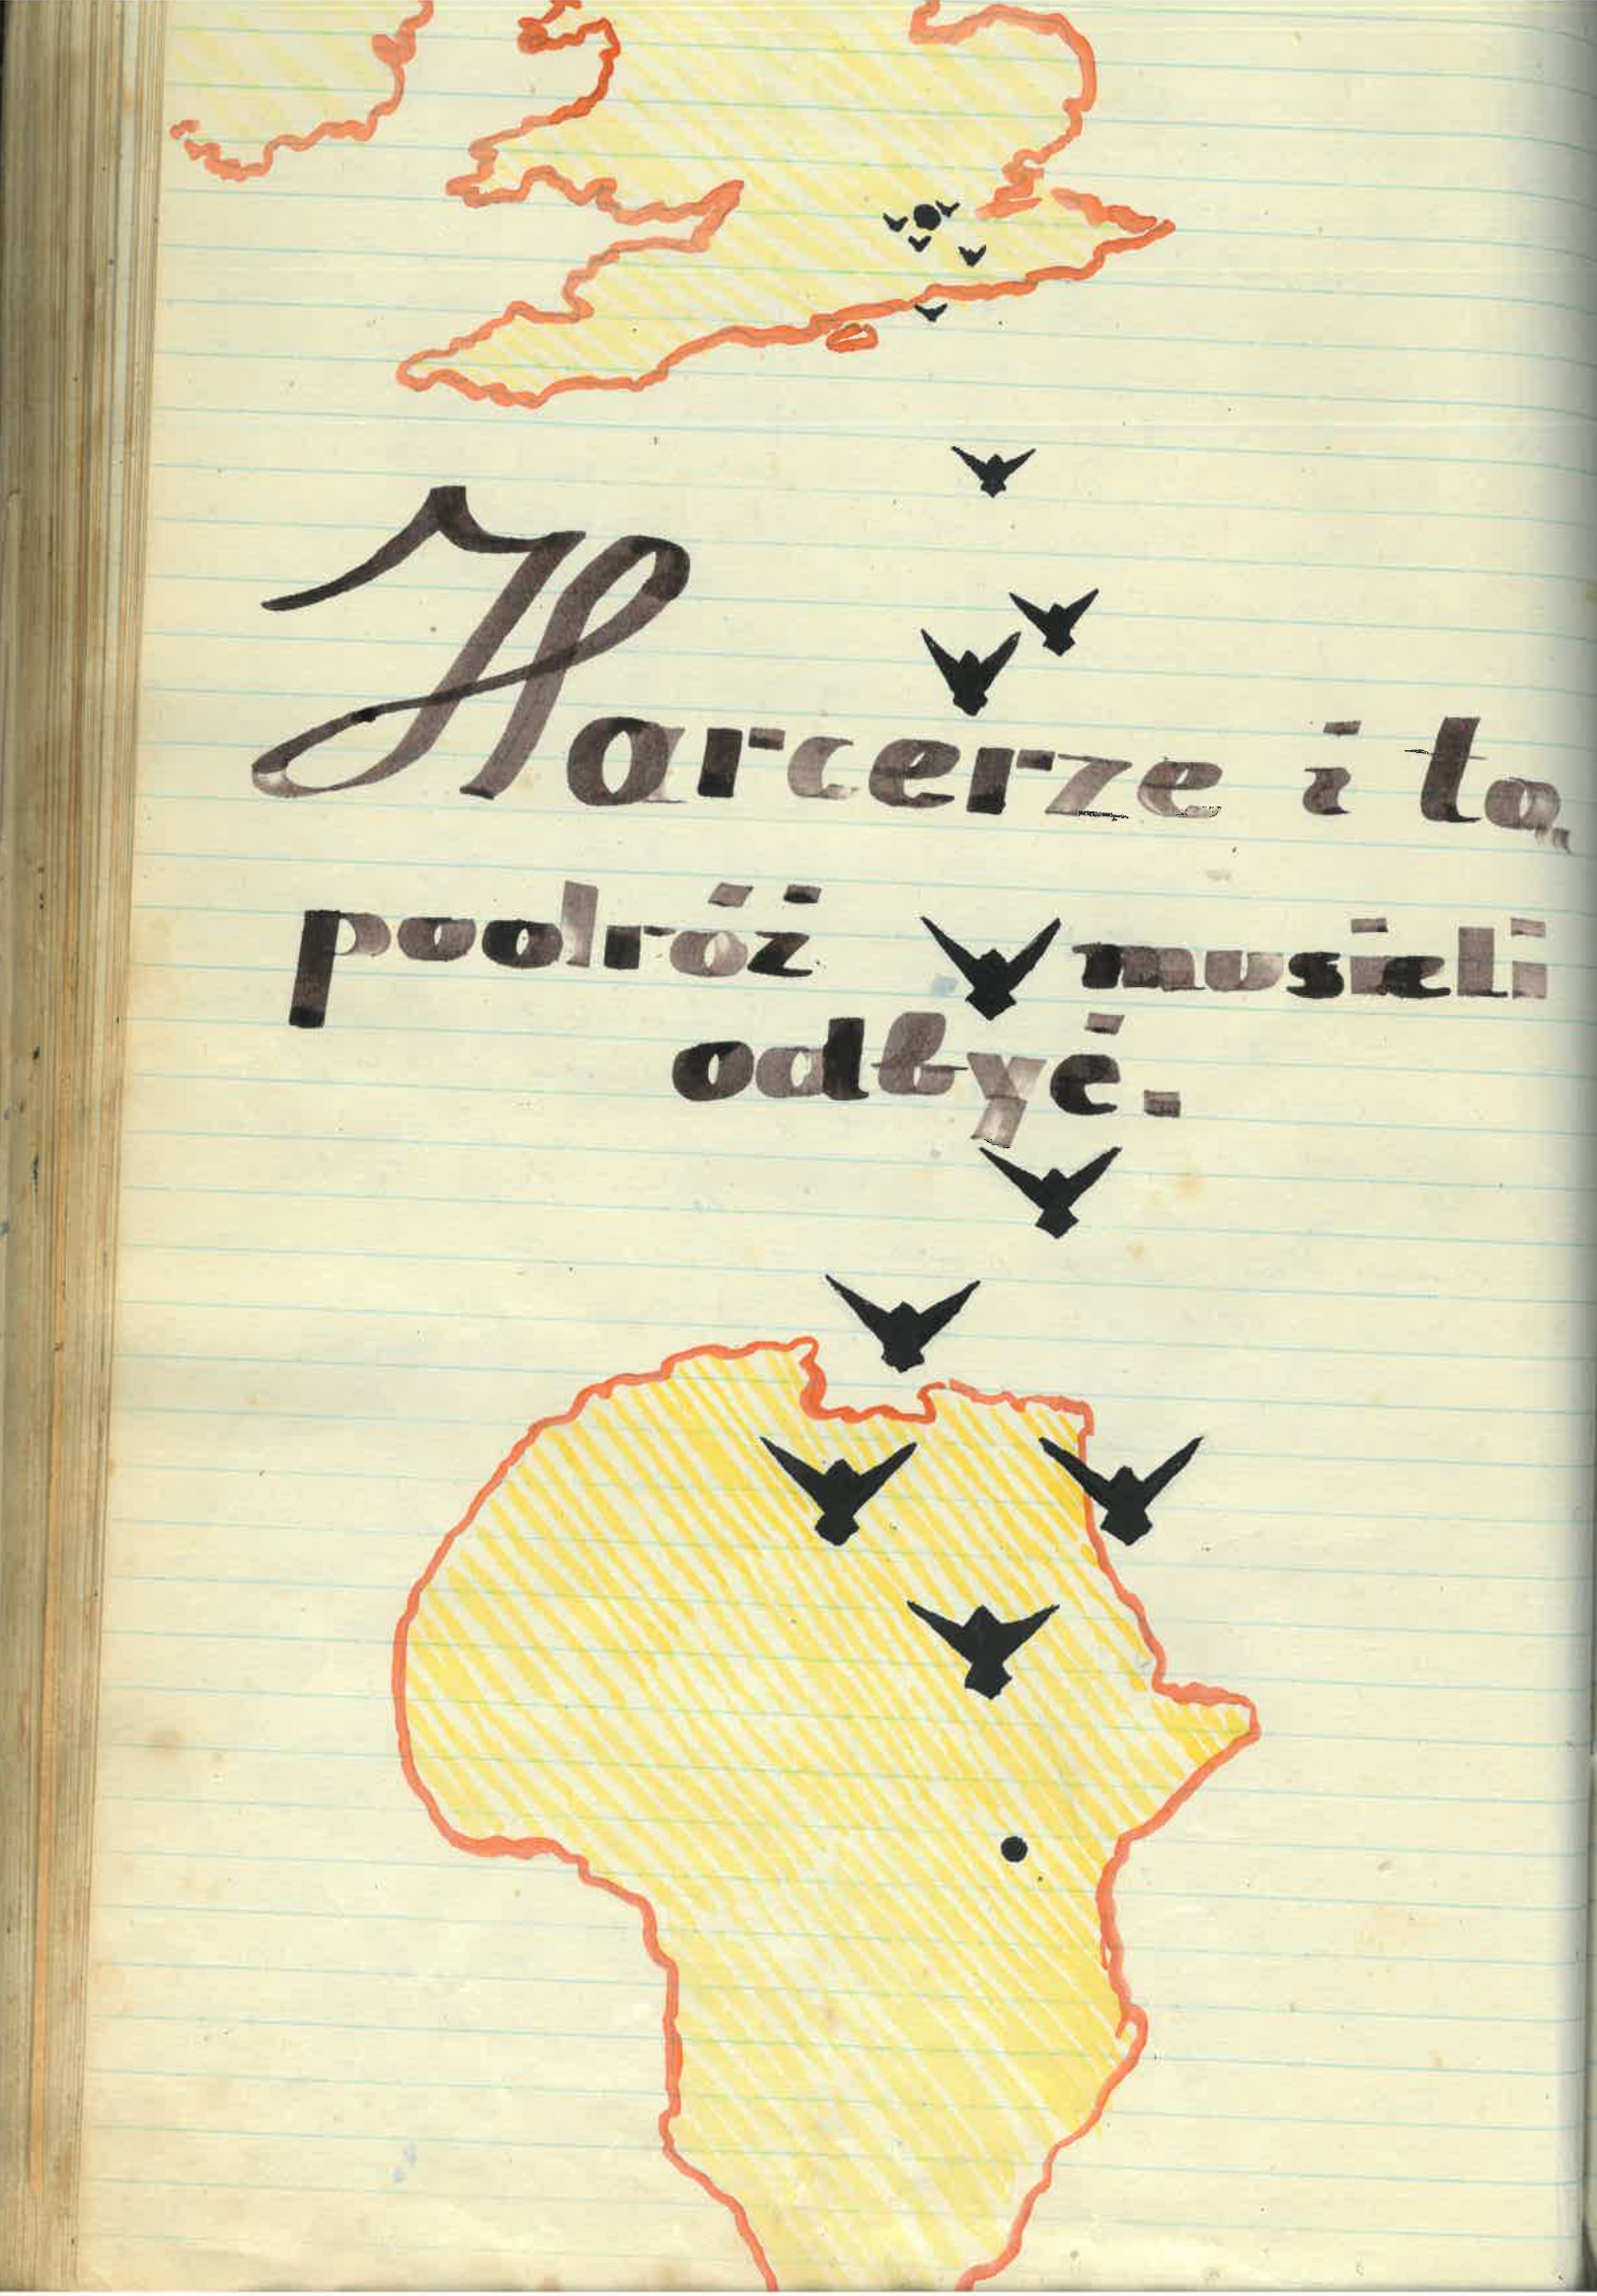 Harcerze i tą
podróż musieli
odbyć.